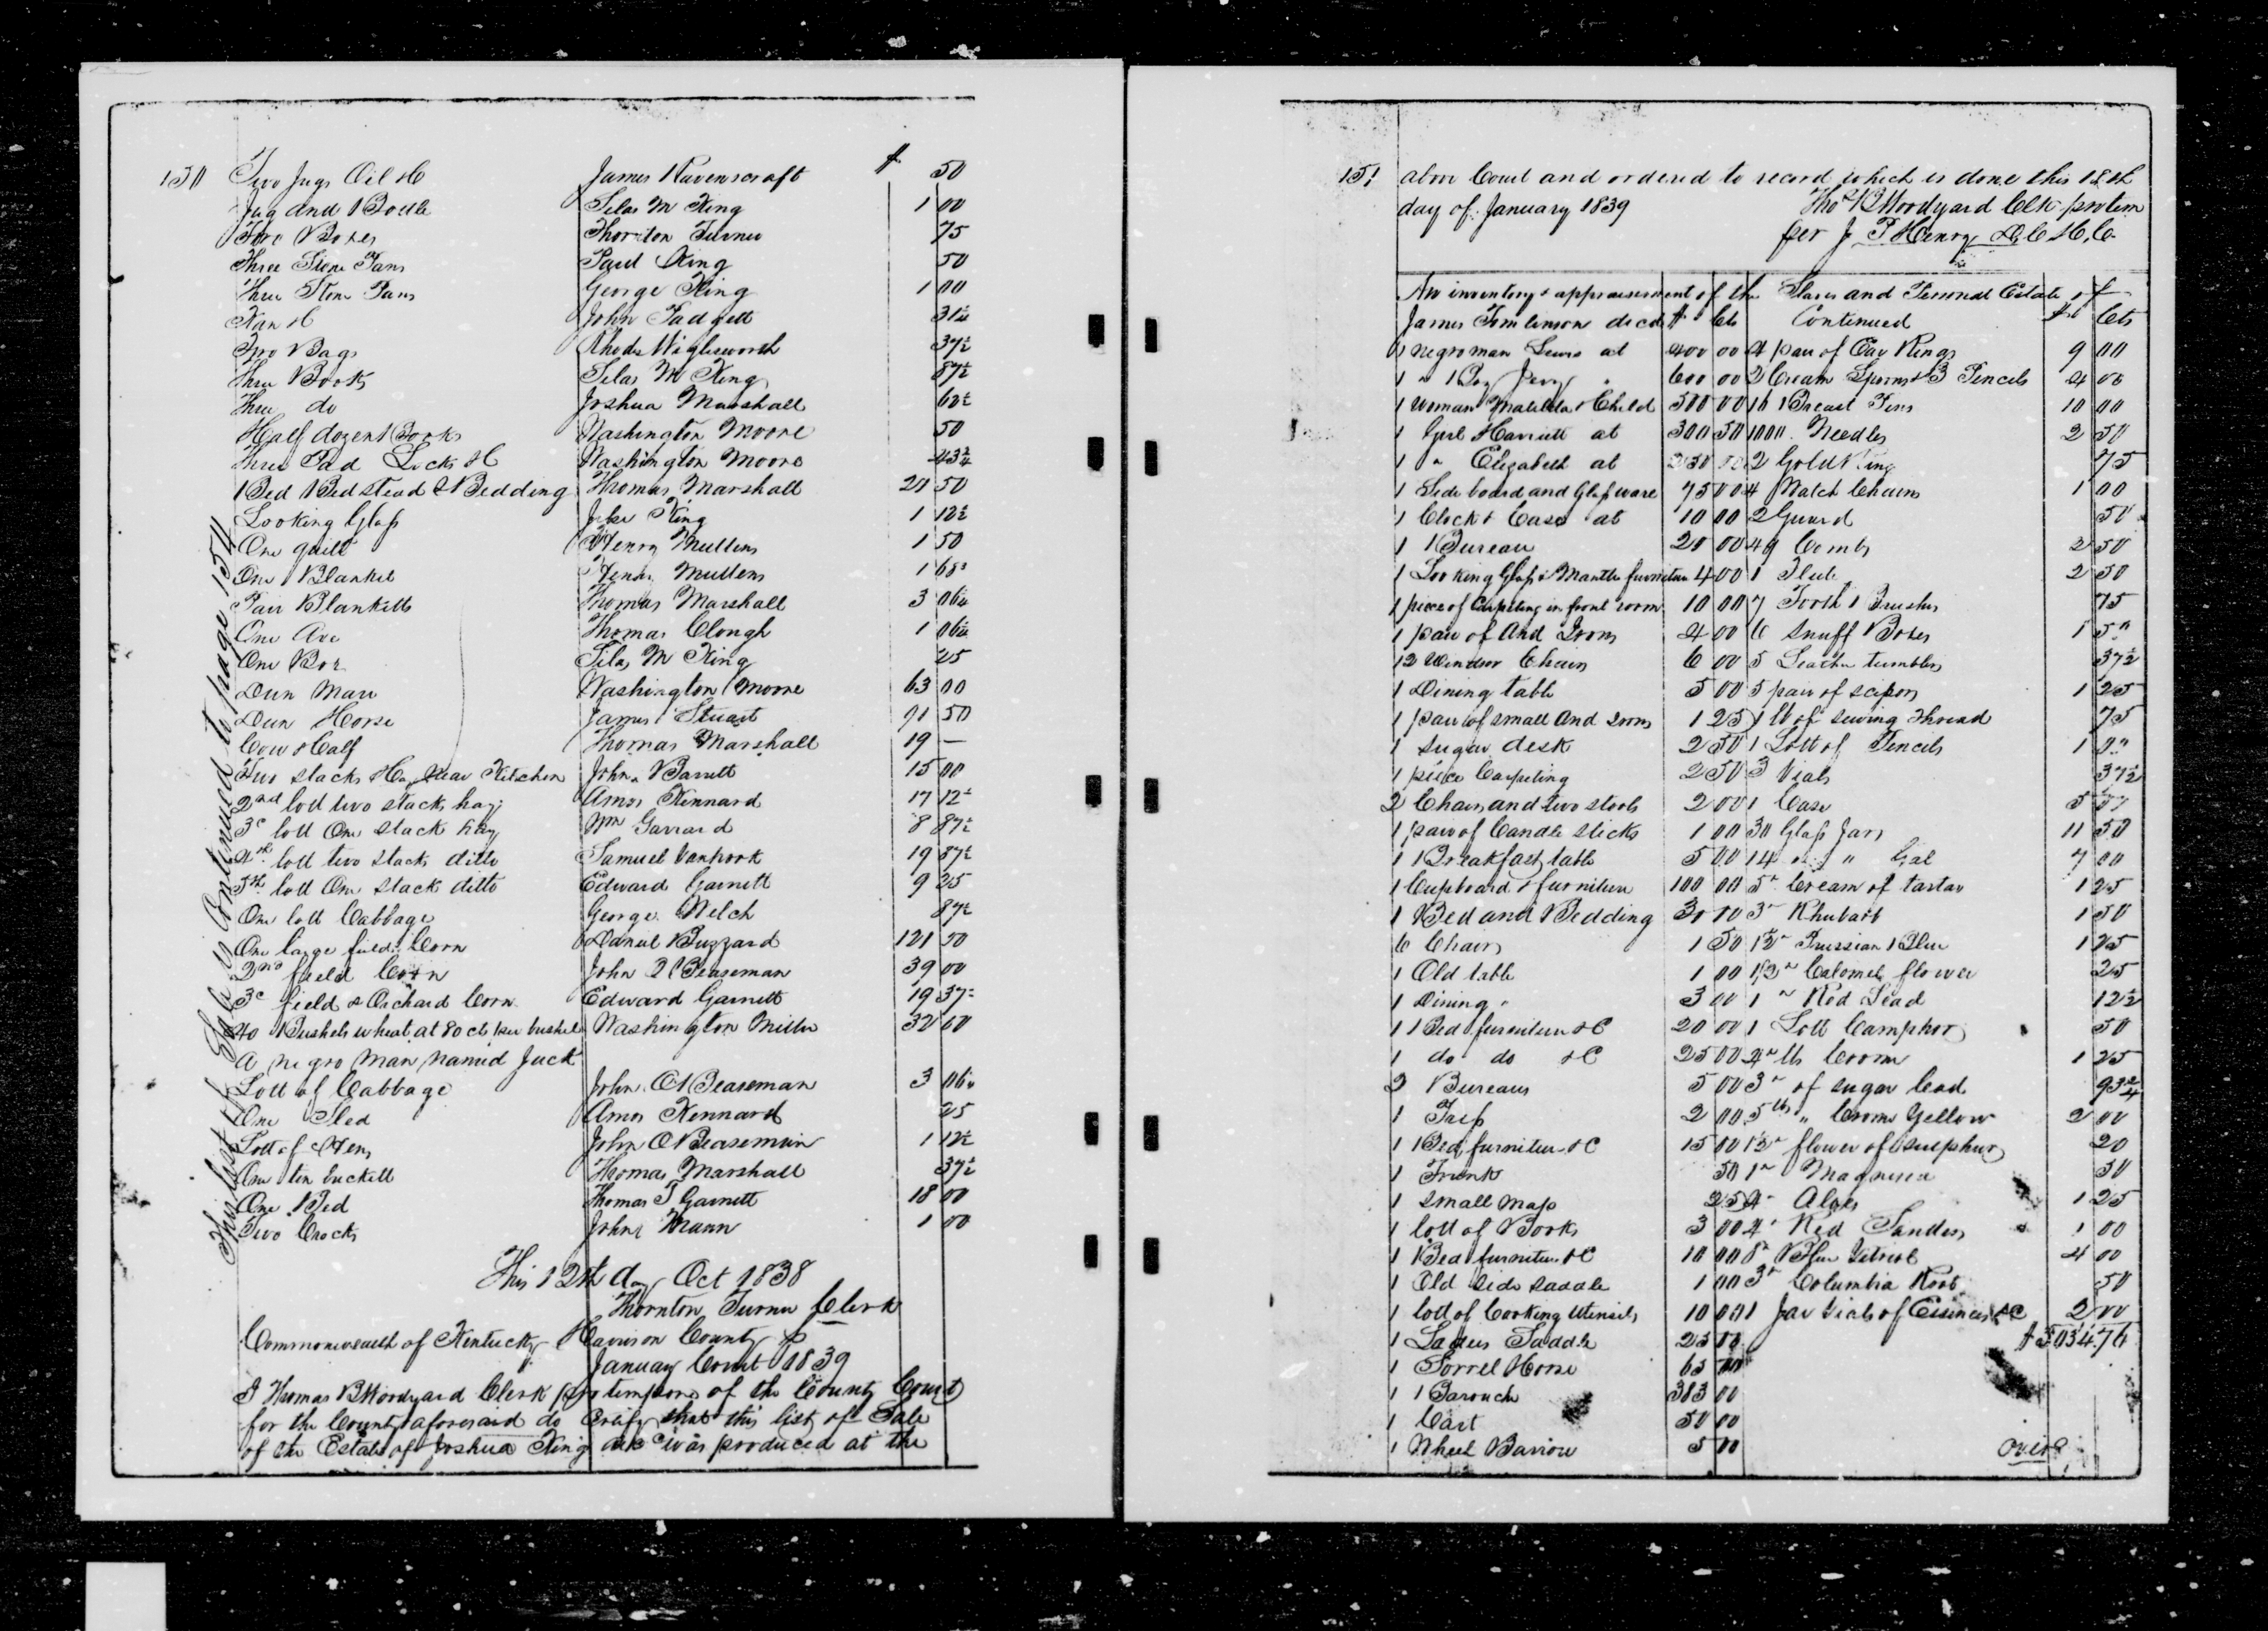 150 Two Jugs Oil &C James Ravenscraft $ 50
Jug and Bottle Silas M King 1 00
Two Boxes Thornton Turner 75
Three Stone Pans Paul King 50
Three Stone Pans George King 1 00
Kan &C John Padgett 31¼
Two Bags Rhoda Wiglesworth 37½
Three Books Silas M King 87½
Three do Joshua Marshall 62½
Half dozen Books Washington Moore 50
Three Pad Locks &C Washington Moore 43¾
1 Bed Bedstead & Bedding Thomas Marshall 20 50
Looking Glass King 1 12½
One quilt Henry Mullens 1 50
One Blanket Henry Mullens 1 68
Pair Blanketts Thomas Marshall 3 06¼
One Axe Thomas Clough 1 06¼
One Box Silas M King 25
Dun Mare Washington Moore 63 00
Dun Horse James Stuart 91 50
Cow & Calf Thomas Marshall 19 —
Two stacks Hay near Kitchen John Barrett 15 00
2nd lott two stacks hay Amos Kennard 17 12½
3d lott One stack hay Wm Garrard 8 87½
4th lott two stacks ditto Samuel Vanhook 19 87½
5th lott One stack ditto Edward Garnett 9 25
One lott Cabbage George Welch 87½
One large field Corn Daniel Buzzard 121 50
2nd field Corn John Beaseman 39 00
3d field & Orchard Corn Edward Garnett 19 37½
40 Bushels wheat at 80 cts per bushel Washington Miller 32 00
A negro Man named Jack
Lott of Cabbage John Beaseman 3 06¼
One Sled Amos Kennard 25
Lott of Hens John Beaseman 1 12½
One tin buckett Thomas Marshall 37½
One Bed Thomas T Garnett 18 00
Two Crocks John Mann 1 00
This list of Sale is Continued to page 154
This 12th day Oct 1838
Thornton Turner Clerk
Commonwealth of Kentucky Harrison County
January Court 1839
I Thomas B Woodyard Clerk pro tempore of the County Court
for the County aforesaid do Certify that this list of Sale
of the Estate of Joshua King decd was produced at the
151 above Court and ordered to record which is done this 18th
day of January 1839 Tho B Woodyard Clk protem
per J. P Henry D. C. H. C.
An inventory & appraisement of the Slaves and Personal Estate of
James Tomlinson decd $ Cts Continued $ Cts
1 negro man Lewis at 400 00 4 pair of Ear Rings 9 00
1 " Boy 600 00 2 Cream Spoons & 3 Pencils 4 00
1 Woman Matilda & Child 500 00 16 Breast Pins 10 00
1 Girl Harriett at 300 50 1000 Needles 2 50
1 " Elizabeth at 250 00 2 Gold Ring 75
1 Side board and Glassware 75 00 4 Watch Chains 1 00
1 Clock & Case at 10 00 2 Guard 50
1 Bureau 20 00 49 Combs 2 50
1 Looking Glass & Mantle furniture 4 00 1 Flute 2 50
1 piece of Carpeting in front room 10 00 7 Tooth Brushes 75
1 pair of And Irons 4 00 6 Snuff Boxes 1 50
12 Windsor Chairs 6 00 5 Leather tumblers 37½
1 Dining table 5 00 5 pair of scissors 1 25
1 pair of small And irons 1 25 1 lb of sewing thread 75
1 Sugar desk 2 50 1 Lott of Pencils 1
1 piece Carpeting 2 50 3 Vials 37½
2 Chairs and two stools 2 00 1 Case 5
1 pair of Candle sticks 1 00 30 Glass Jars 11 50
1 Breakfast table 5 00 14 " " Gal 7 00
1 Cupboard & furniture 100 00 5" Cream of tartar 1 25
1 Bed and Bedding 30 00 3" Rhubarb 1 50
6 Chairs 1 50 1½" Prussian Blue 1 25
1 Old table 1 00 1/2" Calomel flower 25
1 Dining " 3 00 1 " Red Lead 12½
1 Bed furniture &C 20 00 1 Lott Camphor 50
1 do do &C 25 00 lb 1 25
2 Bureaus 5 00 3" of sugar lead 93¾
1 2 00 5 lbs " Yellow 2 00
1 Bed furniture &C 15 00 1½" flower of sulphur 20
1 Trunk 50 1" Magnesia 50
1 Small Map 25 4" Aloes 1 25
1 lott of Books 3 00 4" Red Sanders 1 00
1 Bed furniture &C 10 00 8" Blue Vitriol 4 00
1 Old side saddle 1 00 3" Columbia Root 50
1 lott of Cooking Utensils 10 00 1 Jar Vials of Essences &C 2 00
1 Ladies Saddle 25 00 $3034.76
1 Sorrel Horse 65 00
1 Barouche 383 00
1 Cart 50 00
1 Wheel Barrow 5 00 over